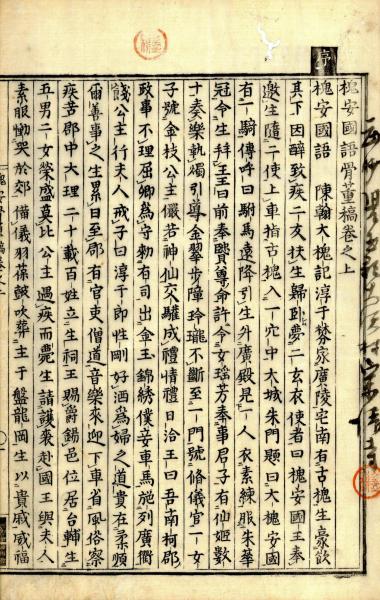 槐安國語骨董稿卷之上
槐安國語 陳翰大槐記淳于棼家廣陵宅南有古槐生豪飲
其下因醉致疾二友扶生歸臥夢二玄衣使者曰槐安國王奉
邀生隨二使上車指古槐入一穴中大城朱門題曰大槐安國
有一騎傳呼曰駙馬遠降引生升廣殿見一人衣素練服朱華
冠令生拜王王曰前奉賢尊命許令女瑤芳奉事君子有仙姬數
十奏樂執燭引導金翠步障玲瓏不斷至一門號修儀宮一女
子號金枝公主儼若神仙交驩成禮情禮日洽王曰吾南柯郡
政事不理屈卿爲守勅有司出金玉錦綉僕妾車馬施列廣衢
餞公主行夫人戒子曰淳于郎性剛好酒爲婦之道貴在柔順
爾善事之生累日至郡有官吏僧道音樂來迎下車省風俗察
疾苦郡中大理二十載百姓立生祠王賜爵錫邑位居台輔生
五男二女榮盛莫比公主遇疾而薨生請護喪赴國王與夫人
素服慟哭於郊備儀羽葆鼓吹葬主于盤龍岡生以貴戚威福